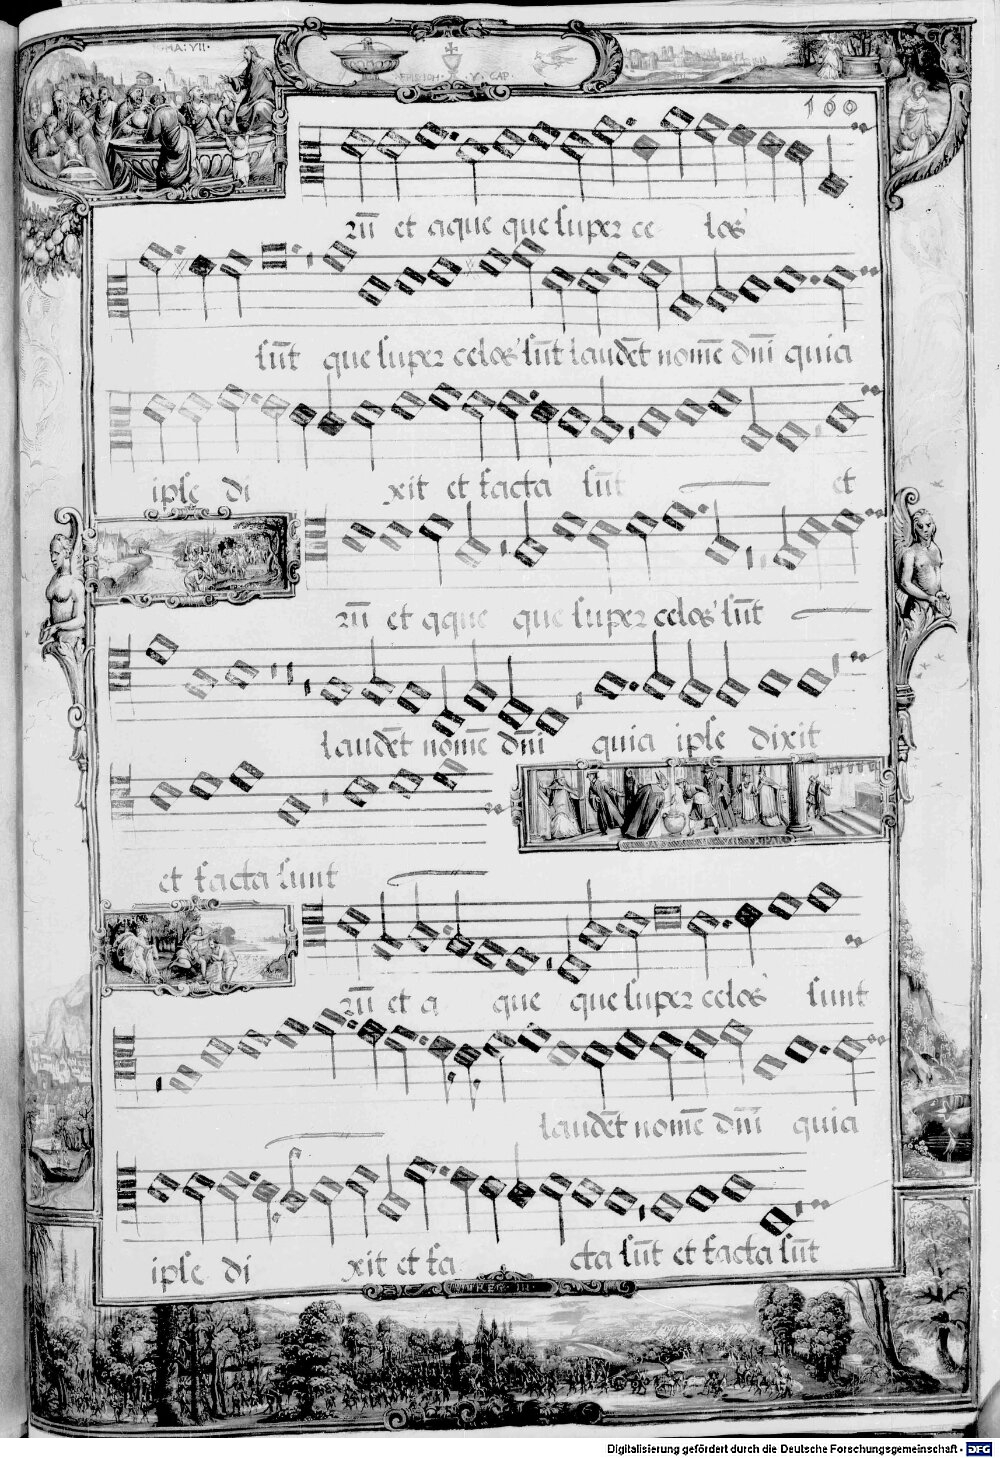 160
EPIS·IOH·V·CAP·
rū et aque que super ce los
sūt que super celos sūt laudēt nomē dn̄i quia
ipse di xit et facta sūt et
rū et aque que super celos sūt
laudēt nomē dn̄i quia ipse dixit
et facta sunt
rū et a que que super celos sunt
laudēt nomē dn̄i quia
ipse di xit et fa cta sūt et facta sūt
Digitalisierung gefördert durch die Deutsche Forschungsgemeinschaft - DFG